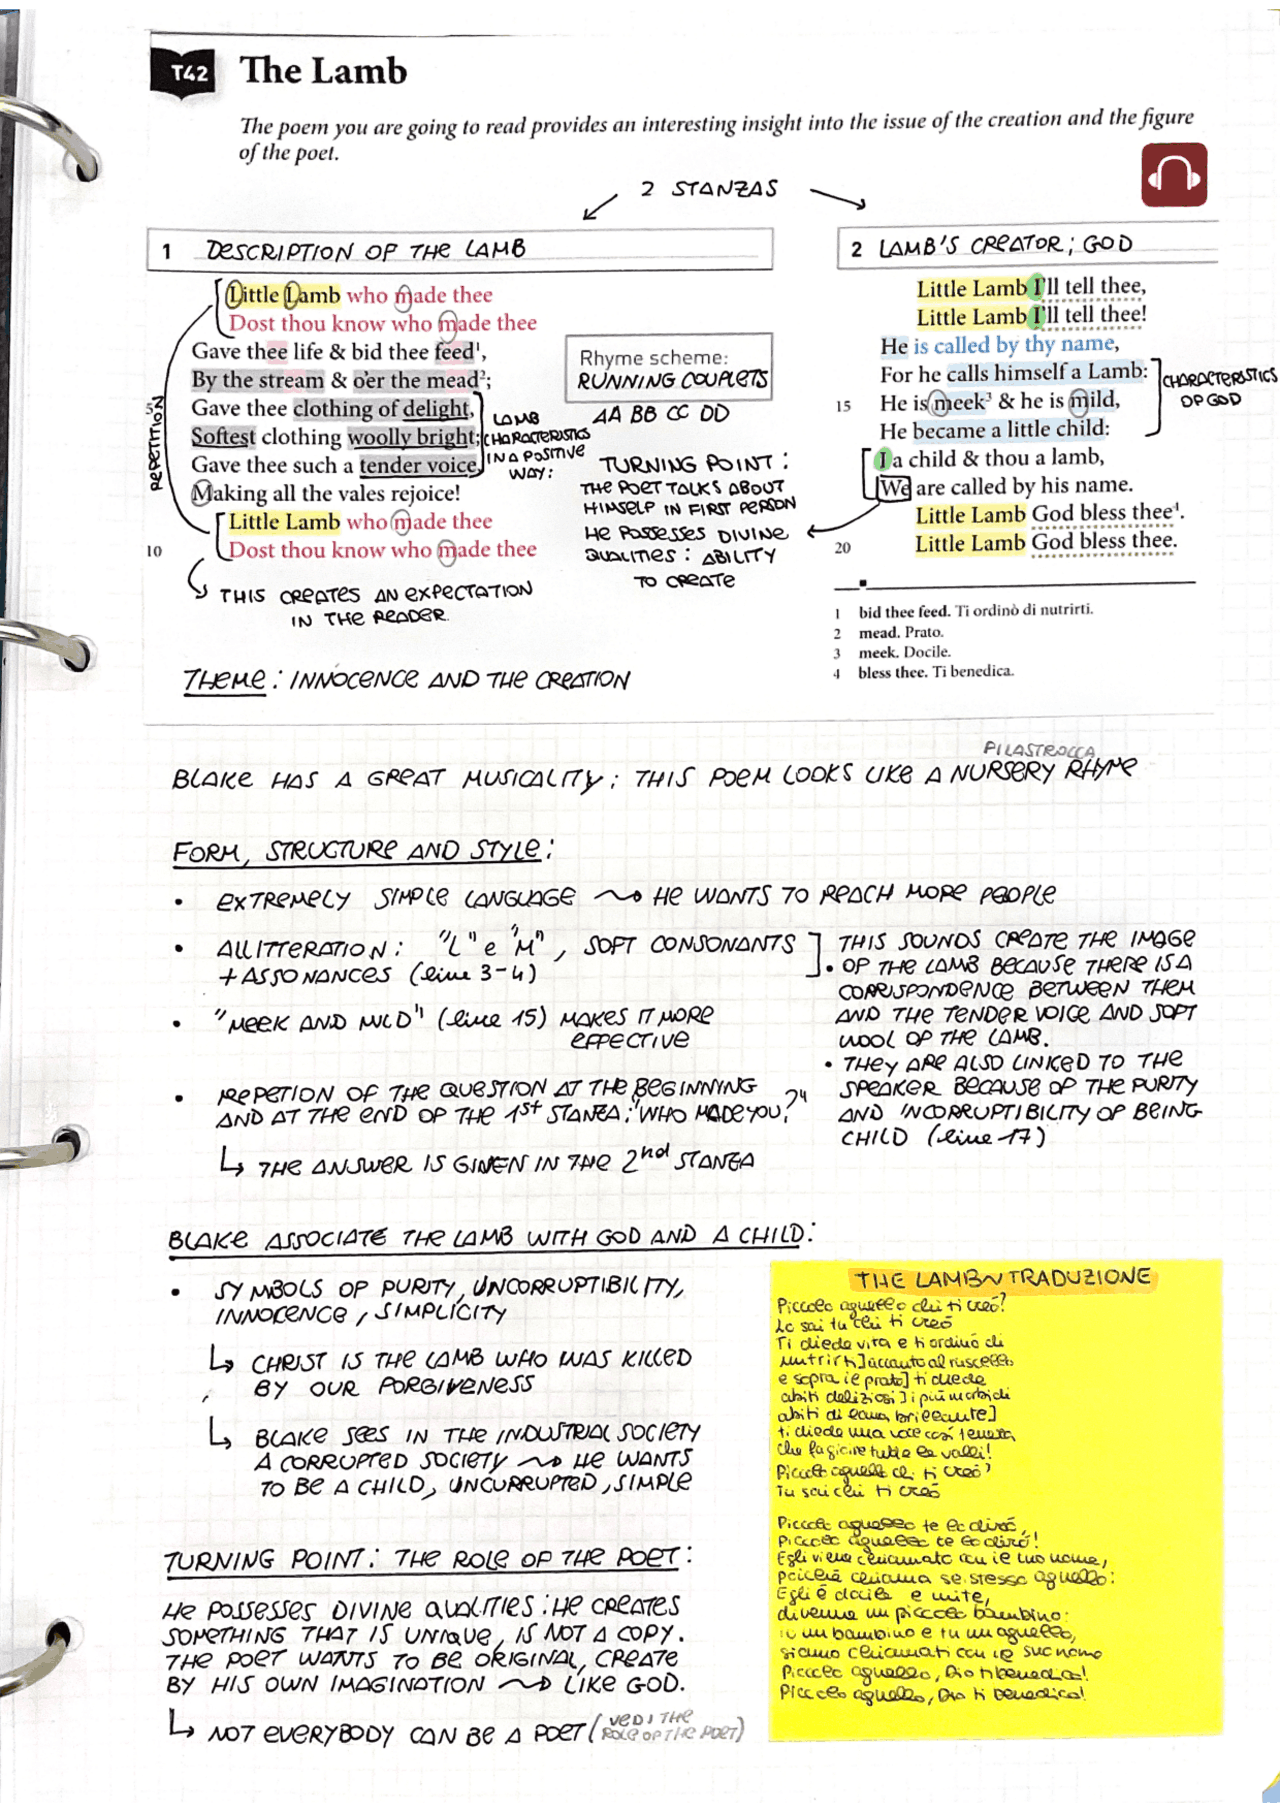 T42 The Lamb
The poem you are going to read provides an interesting insight into the issue of the creation and the figure
of the poet.
2 STANZAS
1 DESCRIPTION OF THE LAMB
Little Lamb who made thee
Dost thou know who made thee
Gave thee life & bid thee feed¹,
By the stream & o'er the mead²;
5 Gave thee clothing of delight,
Softest clothing woolly bright;
Gave thee such a tender voice,
Making all the vales rejoice!
Little Lamb who made thee
10 Dost thou know who made thee
REPETITION
THIS CREATES AN EXPECTATION
IN THE READER.
LAMB
CHARACTERISTICS
IN A POSITIVE
WAY:
Rhyme scheme:
RUNNING COUPLETS
AA BB CC DD
TURNING POINT:
THE POET TALKS ABOUT
HIMSELF IN FIRST PERSON
HE POSSESSES DIVINE
QUALITIES: ABILITY
TO CREATE
2 LAMB'S CREATOR; GOD
Little Lamb I'll tell thee,
Little Lamb I'll tell thee!
He is called by thy name,
For he calls himself a Lamb:
15 He is meek³ & he is mild,
He became a little child:
I a child & thou a lamb,
We are called by his name.
Little Lamb God bless thee⁴.
20 Little Lamb God bless thee.
CHARACTERISTICS
OF GOD
1 bid thee feed. Ti ordinò di nutrirti.
2 mead. Prato.
3 meek. Docile.
4 bless thee. Ti benedica.
THEME: INNOCENCE AND THE CREATION
FILASTROCCA
BLAKE HAS A GREAT MUSICALITY; THIS POEM LOOKS LIKE A NURSERY RHYME
FORM, STRUCTURE AND STYLE:
• EXTREMELY SIMPLE LANGUAGE ~> HE WANTS TO REACH MORE PEOPLE
• ALLITTERATION: "L" e "M", SOFT CONSONANTS
+ ASSONANCES (line 3-4)
• "MEEK AND MILD" (line 15) MAKES IT MORE
EFFECTIVE
• REPETION OF THE QUESTION AT THE BEGINNING
AND AT THE END OF THE 1st STANZA: "WHO MADE YOU?"
↳ THE ANSWER IS GIVEN IN THE 2nd STANZA
THIS SOUNDS CREATE THE IMAGE
• OF THE LAMB BECAUSE THERE IS A
CORRISPONDENCE BETWEEN THEM
AND THE TENDER VOICE AND SOFT
WOOL OF THE LAMB.
• THEY ARE ALSO LINKED TO THE
SPEAKER BECAUSE OF THE PURITY
AND INCORRUPTIBILITY OF BEING
CHILD (line 17)
BLAKE ASSOCIATE THE LAMB WITH GOD AND A CHILD:
• SYMBOLS OF PURITY, UNCORRUPTIBILITY,
INNOCENCE, SIMPLICITY
↳ CHRIST IS THE LAMB WHO WAS KILLED
BY OUR FORGIVENESS
↳ BLAKE SEES IN THE INDUSTRIAL SOCIETY
A CORRUPTED SOCIETY ~> HE WANTS
TO BE A CHILD, UNCURRUPTED, SIMPLE
TURNING POINT: THE ROLE OF THE POET:
HE POSSESSES DIVINE QUALITIES: HE CREATES
SOMETHING THAT IS UNIQUE, IS NOT A COPY.
THE POET WANTS TO BE ORIGINAL, CREATE
BY HIS OWN IMAGINATION ~> LIKE GOD.
↳ NOT EVERYBODY CAN BE A POET (VEDI THE
ROLE OF THE POET)
THE LAMB ~ TRADUZIONE
Piccolo agnello chi ti creò?
Lo sai tu chi ti creò
Ti diede vita e ti ordinò di
nutrirti] accanto al ruscello
e sopra il prato] ti diede
abiti deliziosi] i più morbidi
abiti di lana brillante]
ti diede una voce così tenera
che fa gioire tutte le valli!
Piccolo agnello chi ti creò?
Tu sai chi ti creò
Piccolo agnello te lo dirò,
Piccolo agnello te lo dirò!
Egli viene chiamato con il tuo nome,
Poichè chiama se stesso agnello:
Egli è docile e mite,
divenne un piccolo bambino:
io un bambino e tu un agnello,
siamo chiamati con il suo nome
Piccolo agnello, Dio ti benedica!
Piccolo agnello, Dio ti benedica!